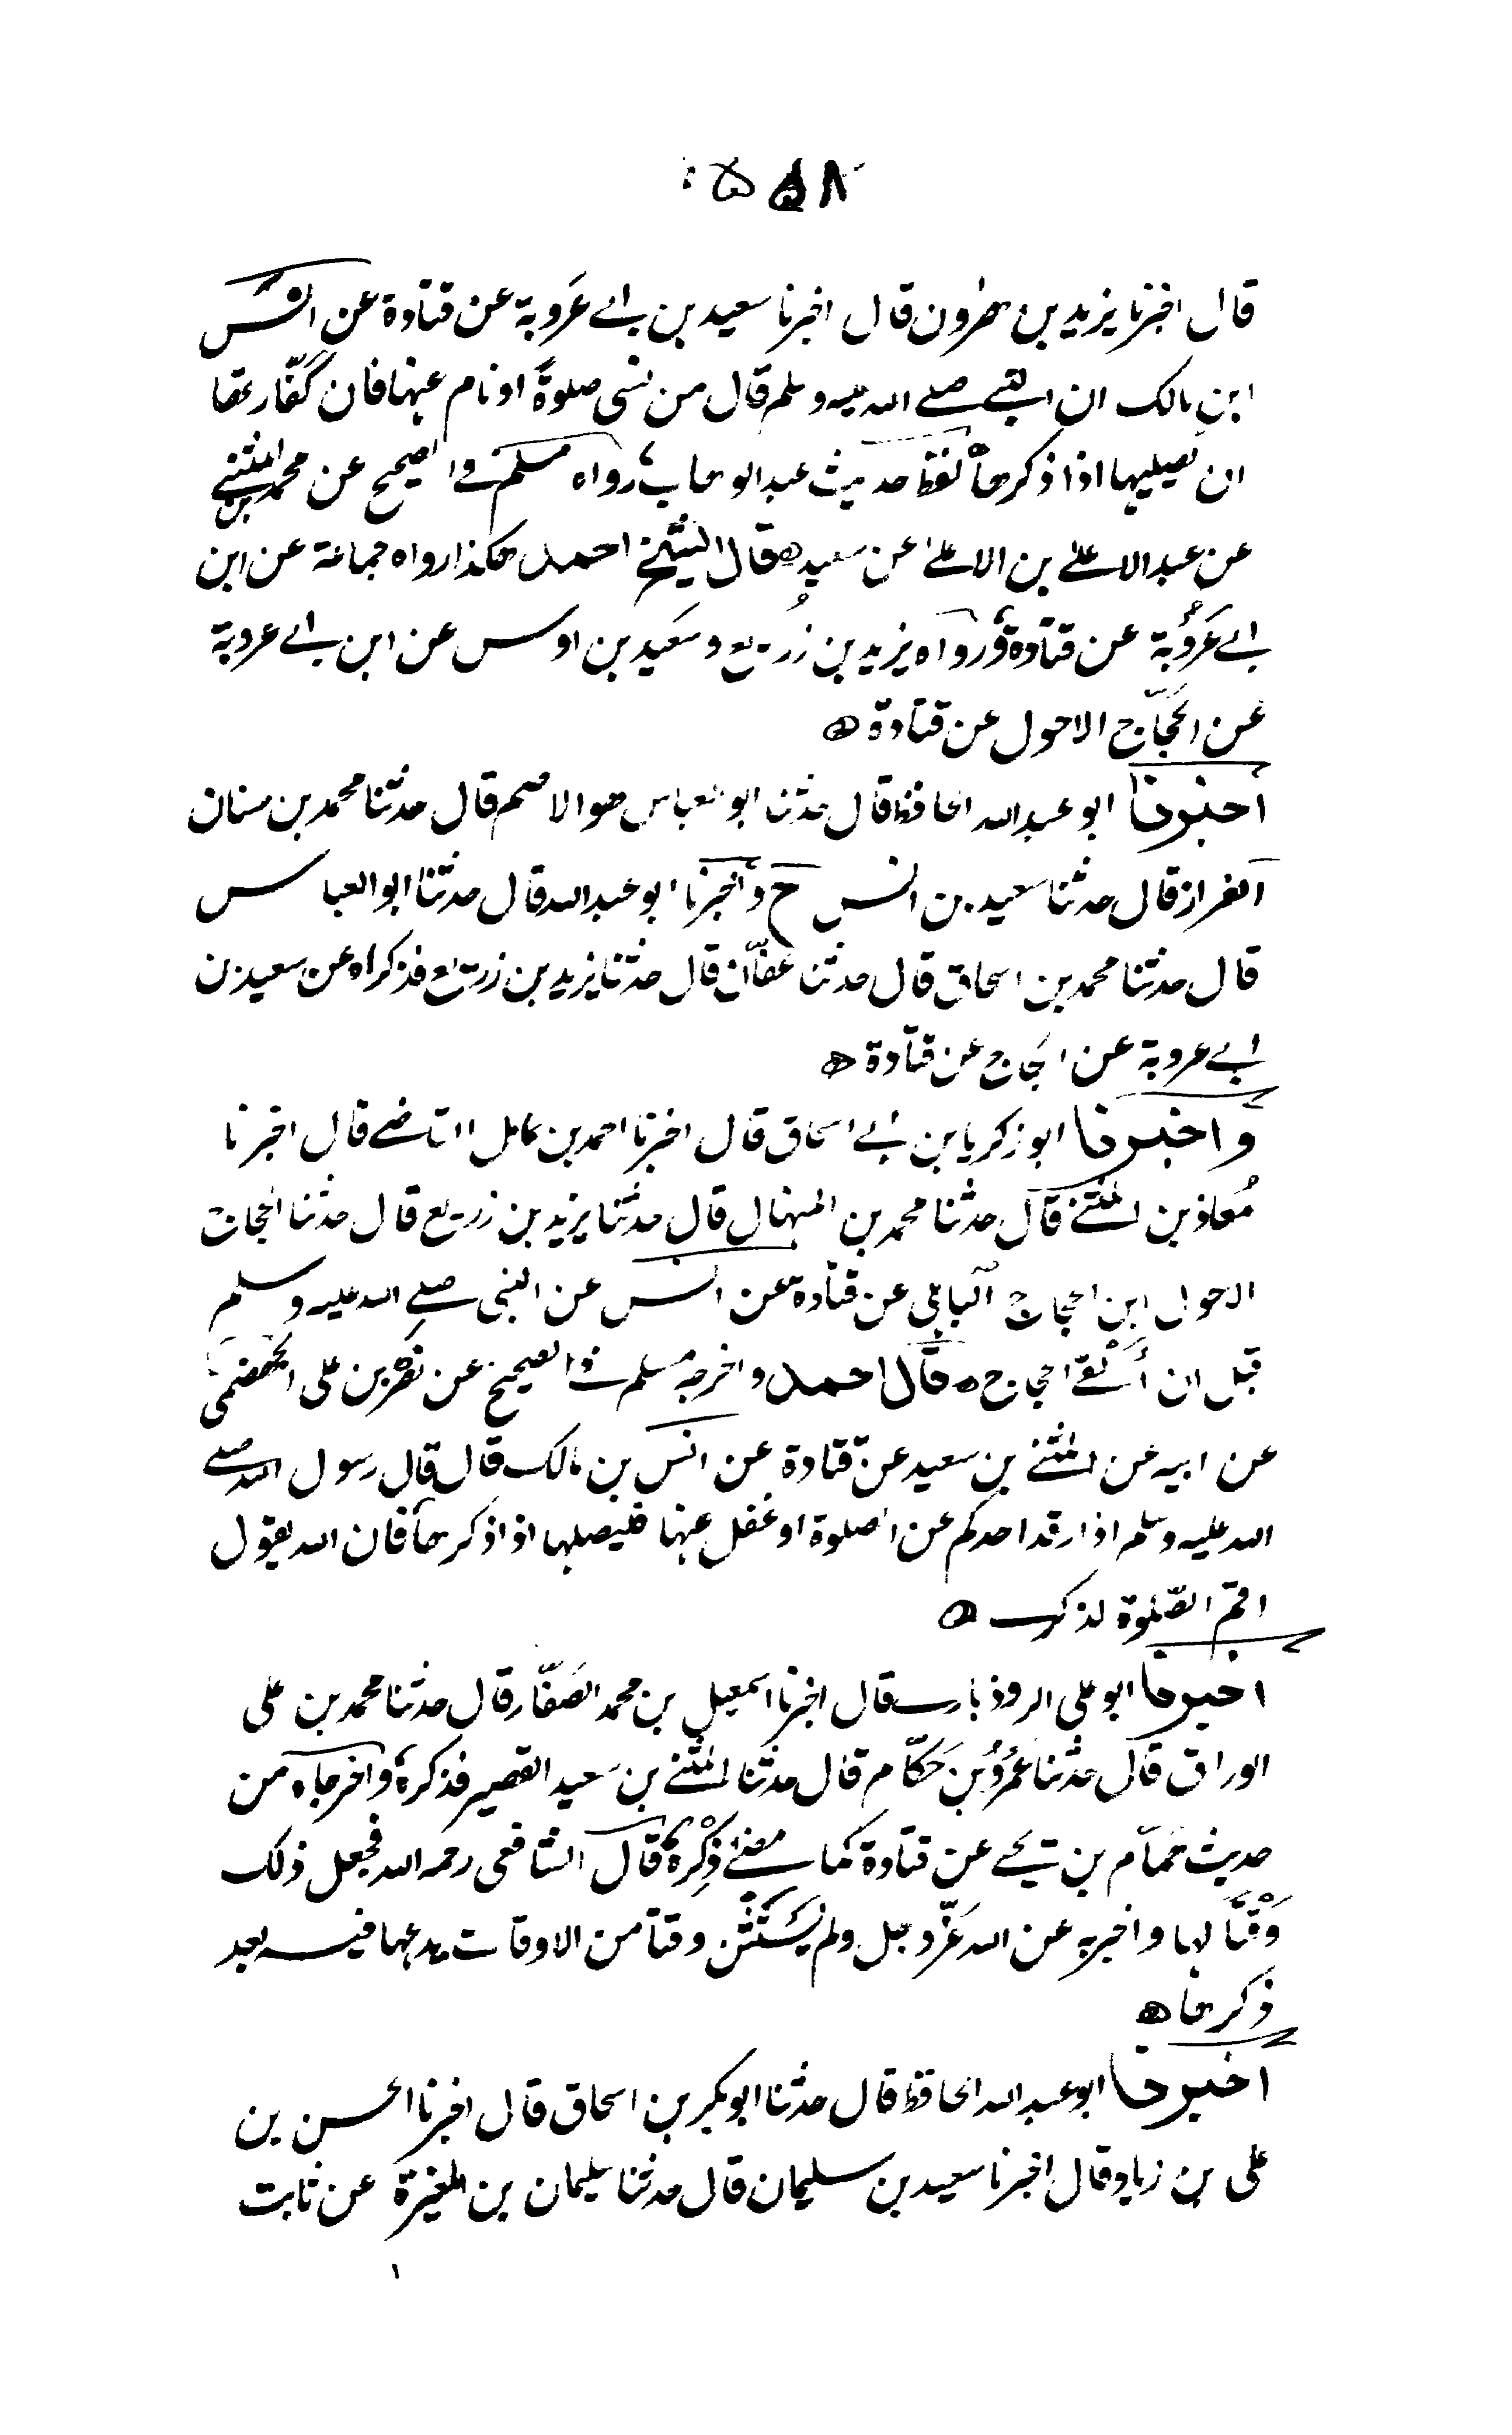 ٥٥٨
قال اخبرنا يزيد بن هرون قال اخبرنا سعيد بن ابي عَروبة عن قتادة عن انس
ابن مالك ان النبي صلى الله عليه وسلم قال من نسي صلوةً او نام عنها فان كفّارتها
ان يصليها اذا ذكرها لفظ حديث عبد الوهاب رواه مسلم في الصحيح عن محمد بن المثنى
عن عبد الاعلى بن الاعلى عن سعيد ه قال الشيخ احمد هكذا رواه جماعة عن ابن
ابي عَروُبة عن قتادة ورواه يزيد بن زُريع وسعيد بن اوس عن ابن ابي عروبة
عن الحجّاج الاحول عن قتادة ه
اخبرنا ابو عبد الله الحافظ قال حدثنا ابو العباس هو الاصم قال حدثنا محمد بن سنان
القزاز قال حدثنا سعيد بن انس ح واخبرنا ابو عبد الله قال حدثنا ابو العباس
قال حدثنا محمد بن اسحاق قال حدثنا عفّان قال حدثنا يزيد بن زريع فذكراه عن سعيد بن
ابي عروبة عن الحجاج عن قتادة ه
واخبرنا ابو زكريا بن ابي اسحاق قال اخبرنا احمد بن كامل القاضي قال اخبرنا
مُعاذ بن المثنى قال حدثنا محمد بن المنهال قال حدثنا يزيد بن زريع قال حدثنا الحجاج
الاحول ابن الحجاج الباهلي عن قتادة عن انس عن النبي صلى الله عليه وسلم
قبل ان أَلْقى الحجاج ه قال احمد واخرجه مسلم في الصحيح عن نصر بن علي الجهضمي
عن ابيه عن المثنى بن سعيد عن قتادة عن انس بن مالك قال قال رسول الله صلى
الله عليه وسلم اذا رقد احدكم عن الصلوة او غفل عنها فليصلها اذا ذكرها فان الله يقول
اقم الصّلوة لذكري ه
اخبرنا ابو علي الروذباري قال اخبرنا اسمعيل بن محمد الصَفّار قال حدثنا محمد بن علي
الوراق قال حدثنا عَمْرُو بن حَكّام قال حدثنا المثنى بن سعيد القصير فذكره واخرجاه من
حديث همّام بن يحيى عن قتادة كما مضى ذِكْرهُ قال الشافعي رحمه الله فجعل ذلك
وَقْتًا لها واخبر به عن الله عَزّ وجل ولم يَسْتَثْن وقتا من الاوقات يدعها فيه بعد
ذكرها ه
اخبرنا ابو عبد الله الحافظ قال حدثنا ابو بكر بن اسحاق قال اخبرنا الحسن بن
علي بن زياد قال اخبرنا سعيد بن سليمان قال حدثنا سليمان بن المغيرة عن ثابت